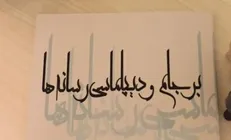 برجام و دیپلماسی رسانه‌ها